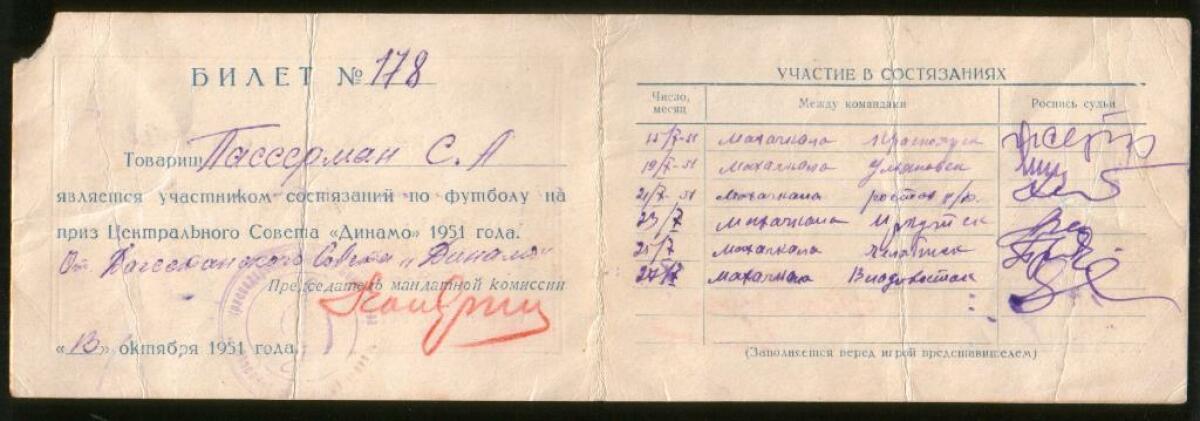 БИЛЕТ № 178
Товарищ Пассерман С. А
является участником состязаний по футболу на
приз Центрального Совета «Динамо» 1951 года.
От Дагестанского Совета „Динамо“
Председатель мандатной комиссии
«13» октября 1951 года.
УЧАСТИЕ В СОСТЯЗАНИЯХ
Число, месяц Между командами Роспись судьи
15/X-51 махачкала
19/X-51 махачкала Ульяновск
21/X 51 махачкала ростов н/д.
23/X махачкала Иркутск
25/X махачкала Челябинск
27/X махачкала Владивосток
(Заполняется перед игрой представителем)